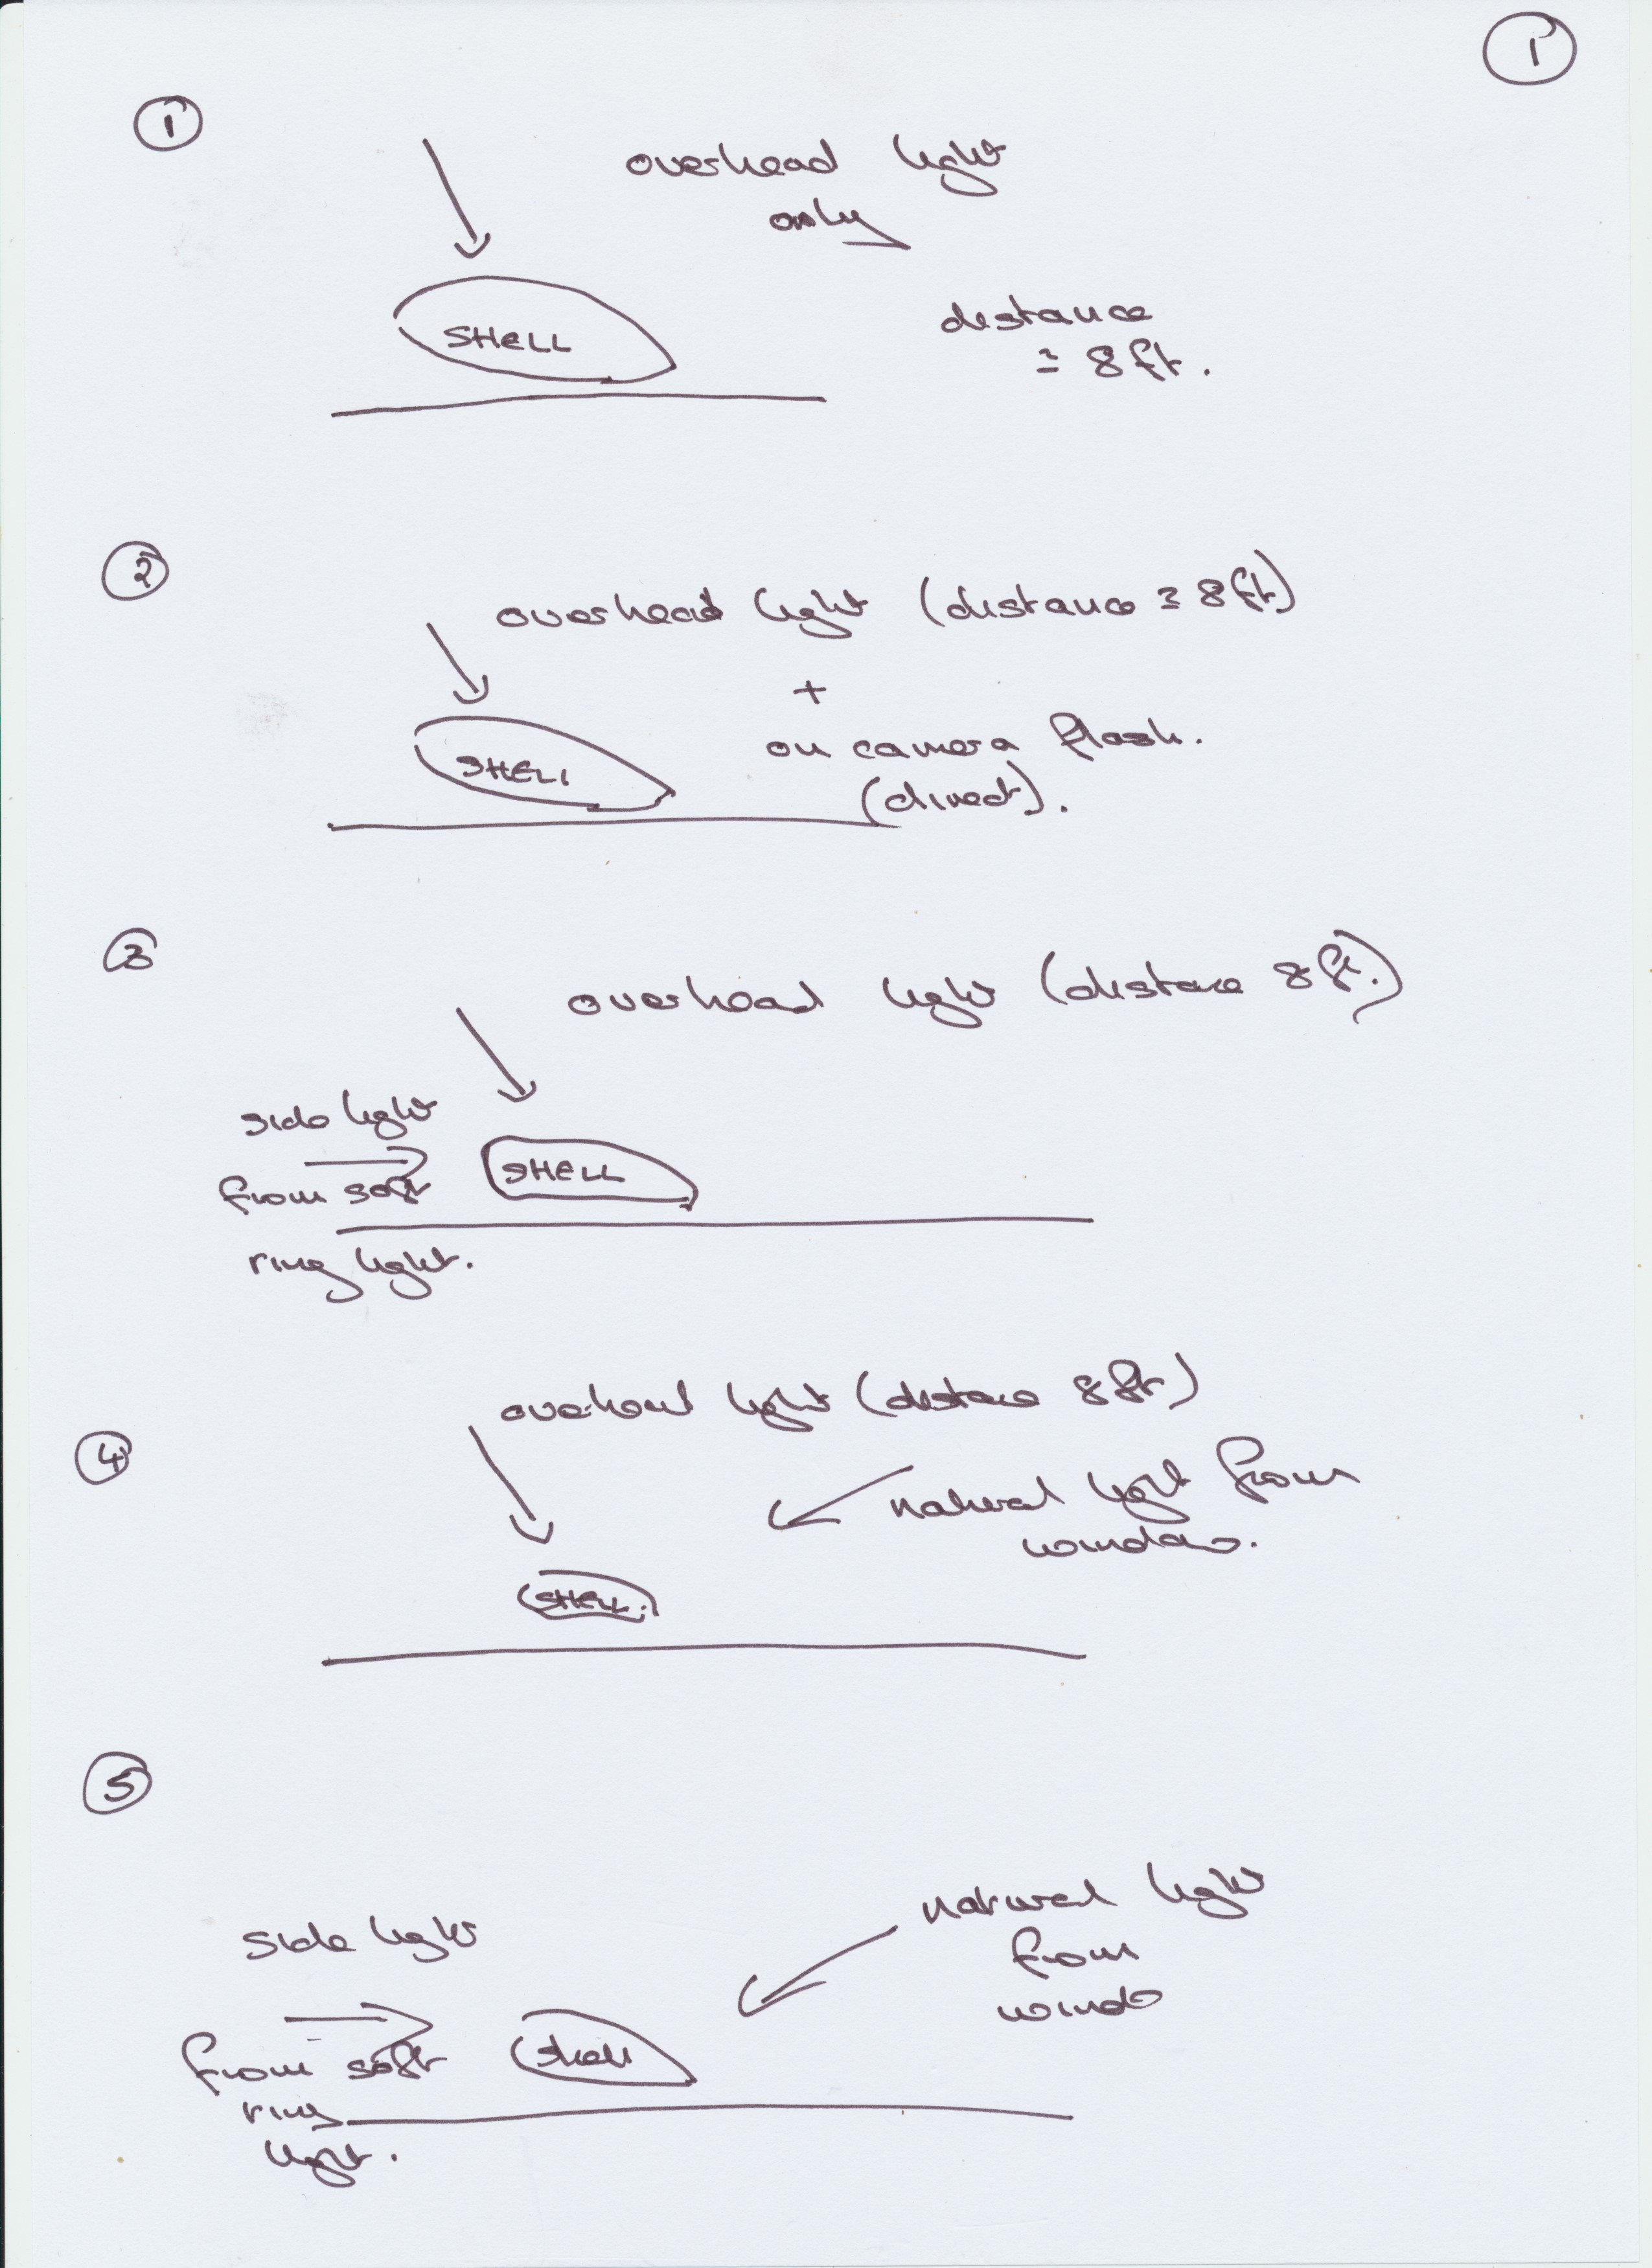 1
1
overhead light
only
SHELL
distance
≃ 8ft.
2
overhead light (distance ≃ 8ft)
+
SHELL
on camera flash.
(direct).
3
overhead light (distance 8ft.)
side light
SHELL
from soft
ring light.
overhead light (distance 8ft)
4
natural light from
window.
SHELL.
5
natural light
side light
from
windo
from soft
shell
ring
light.